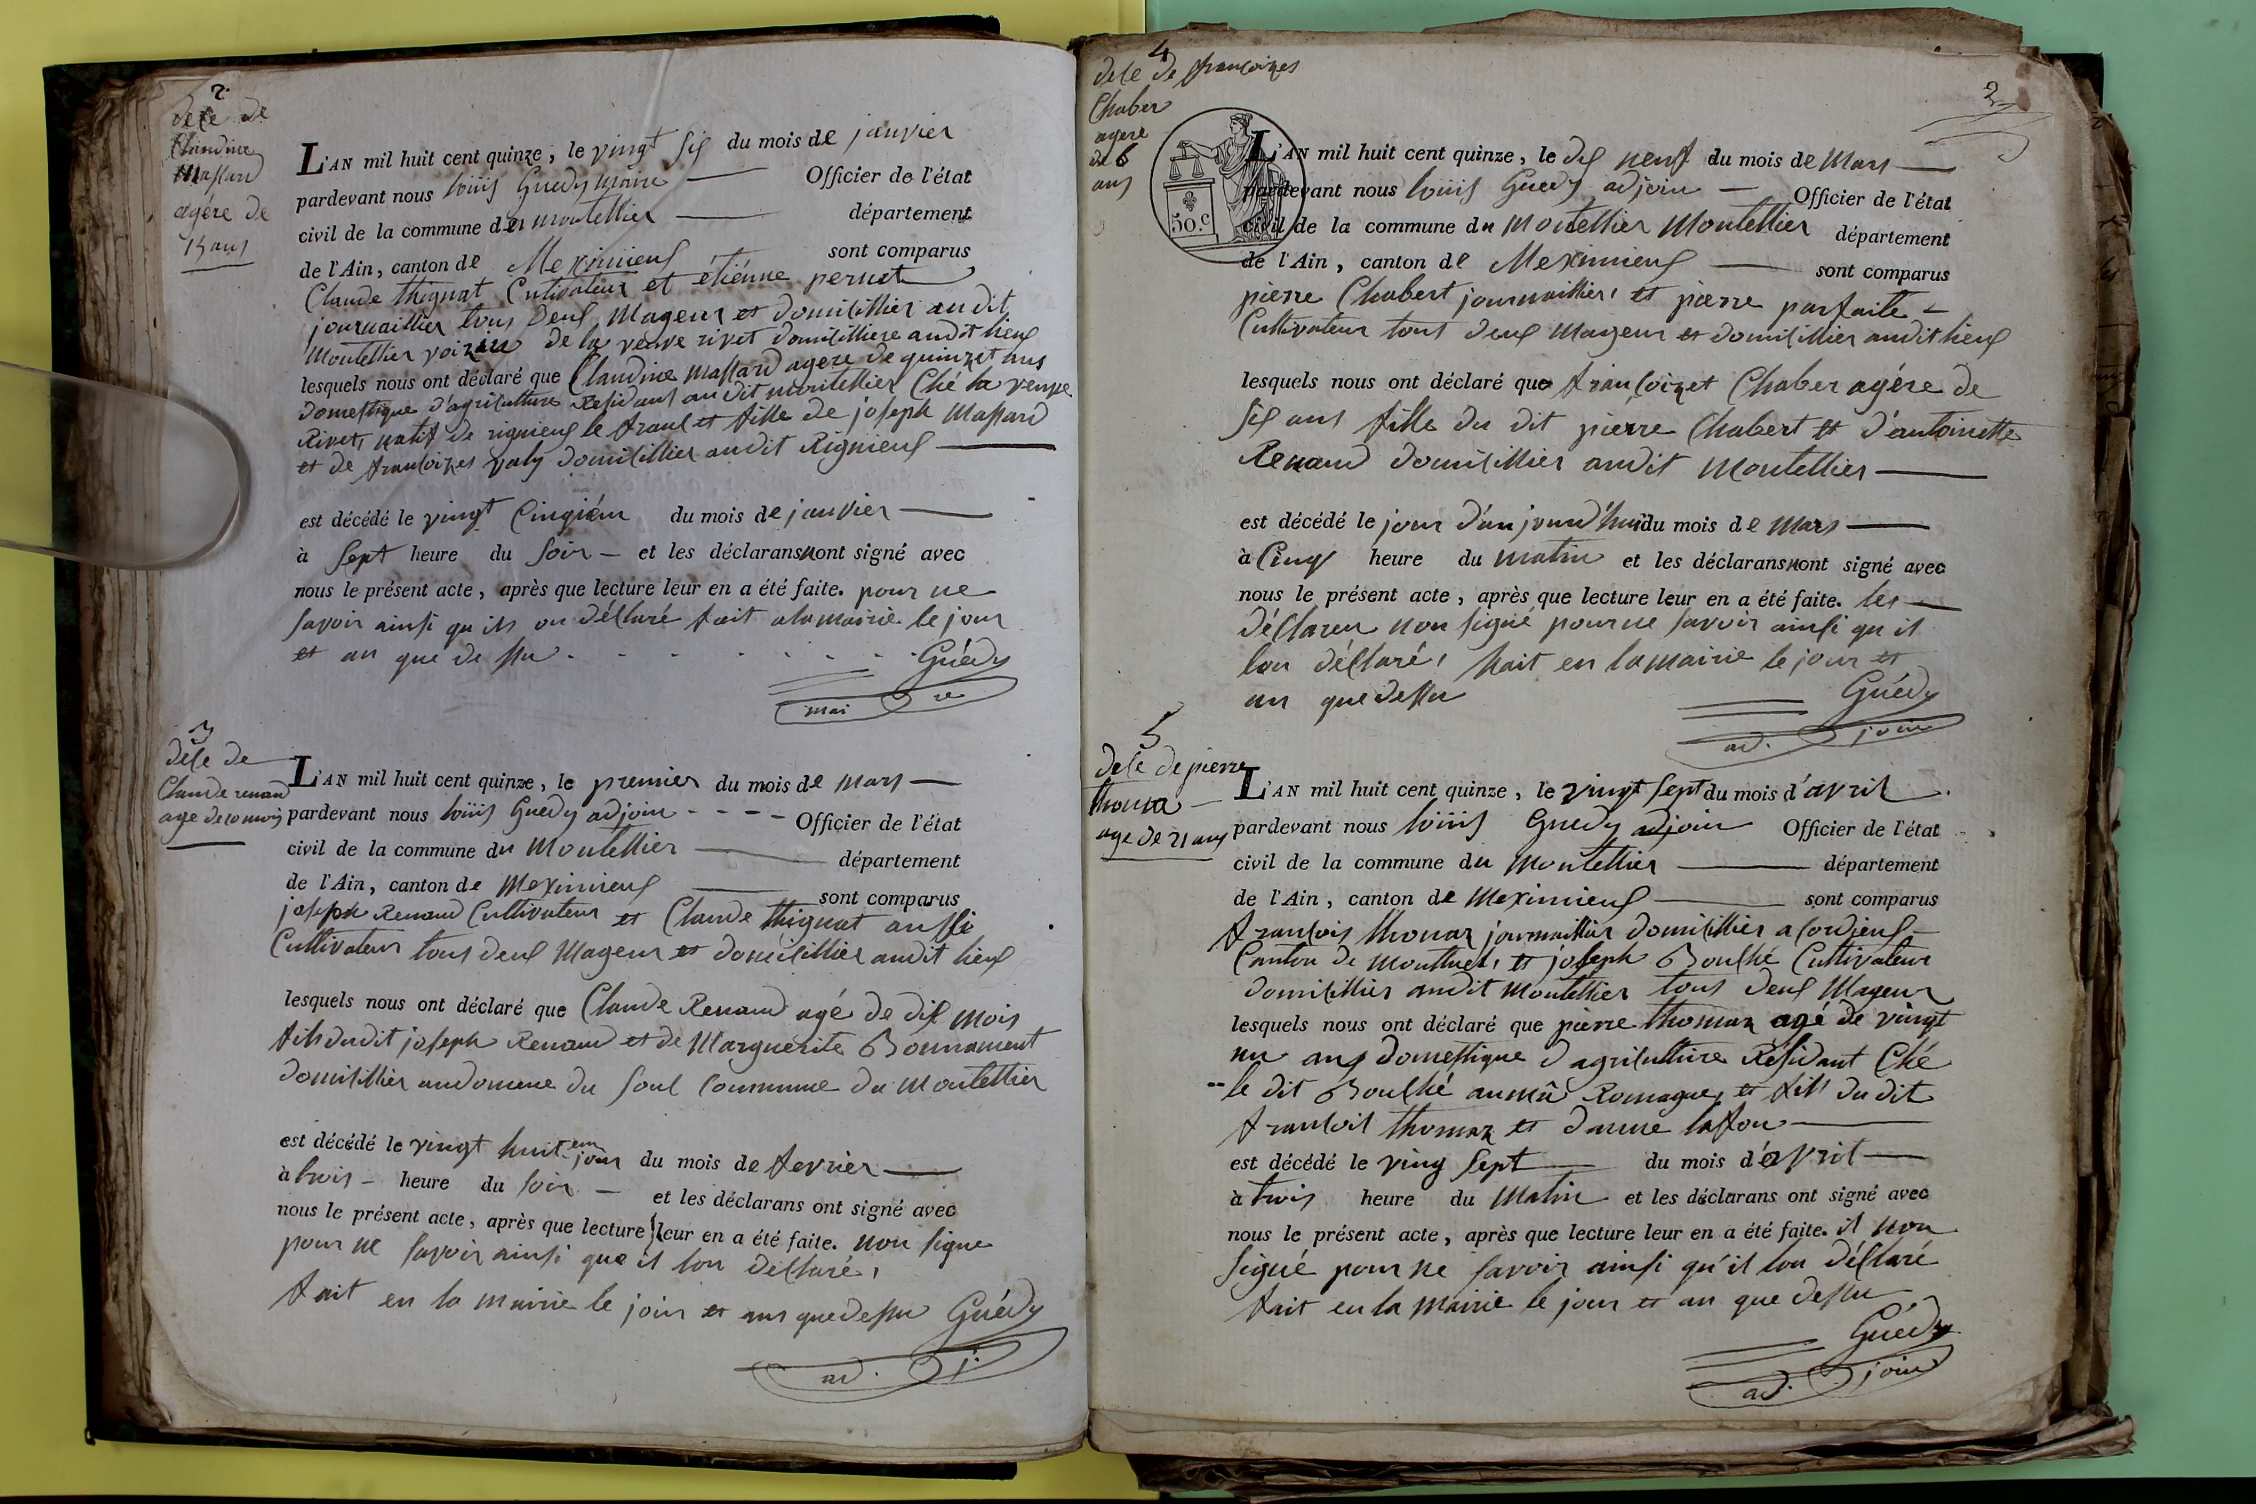 2
dece de
Claudine
Massard
agére de
15 ans
L'AN mil huit cent quinze, le vingt six du mois de janvier
pardevant nous loüis Guedy maire Officier de l'état
civil de la commune du montellier département
de l'Ain, canton de Meximieux sont comparus
Claude thignat Cutivateur et étiénne pernet
journaillier tous deux Mageur et domicillier au dit
Montellier voizin de la veuve rivet domicilliere audit lieux
lesquels nous ont déclaré que Claudine massard agere de quinzet ans
domestique d'agriculture Residant au dit montellier Ché la veuve
Rivet, natif de rignieux le franc et fille de joseph Massard
et de francoizes valy domicillier audit Rignieux
est décédé le vingt Cinqiém du mois de janvier
à sept heure du soir et les déclarans nont signé avec
nous le présent acte, après que lecture leur en a été faite. pour ne
savoir ainsi qu ils on déclaré fait a la mairie le jour
et an que de ssu
Guédy
mai re
3
déce de
Claude renaud
age de 10 mois
L'AN mil huit cent quinze, le premier du mois de mars
pardevant nous loüis Guedy adjoin Officier de l'état
civil de la commune du Montellier département
de l'Ain, canton de Meximieux sont comparus
joseph Renaud Cultivateur et Claude thignat aussi
Cultivateur tous deux Mageur et domicillier audit lieux
lesquels nous ont déclaré que Claude Renaud agé de dix mois
fils dudit joseph Renaud et de Marguerite Bonnament
domicillier audomene du soul Coummune du Montellier
est décédé le vingt huit em jour du mois de fevrier
à trois heure du soir et les déclarans ont signé avec
nous le présent acte, après que lecture leur en a été faite. non signe
pour ne savoir ainsi que il lon declaré,
fait en la mairie le jour et ans que dessu Guédy
ad. j.
4
dece de francoizes
Chaber
agere
de 6
ans
2
50.c
L'AN mil huit cent quinze, le dix neuf du mois de Mars
pardevant nous loüis Guedy adjoin Officier de l'état
civil de la commune du Montellier Montellier département
de l'Ain, canton de Meximieux sont comparus
pierre Chabert journaillier, et pierre parfaite
Cultivateur tout deux Mageur et domicillier audit lieux
lesquels nous ont déclaré que françoizet Chaber agére de
six ans fille du dit pierre Chabert et d'antoinette
Renaud domicillier audit Montellier
est décédé le jour d'au jourd'hui du mois de Mars
à Cinq heure du matin et les déclarans nont signé avec
nous le présent acte, après que lecture leur en a été faite. les
déclaren non signé pour ne savoir ainsi qu il
lon déclaré, fait en la mairie le jour et
an que dessu Guédy
ad. join
5
dece de pierre
thoma
age de 21 ans
L'AN mil huit cent quinze, le vingt sept du mois d'avril
pardevant nous loüis Guedy adjoin Officier de l'état
civil de la commune du Montellier département
de l'Ain, canton de Meximieux sont comparus
francois thomaz journaillier domicillier a cordieux
Canton de montluel, et joseph Bouché Cultivateur
domicillier audit Montellier tous deux Mageur
lesquels nous ont déclaré que pierre thomaz agé de vingt
un ans domestique d agriculture Résidant Ché
le dit Bouché au mâ Romagne, et fils du dit
francoit thomaz et d'anne lafon
est décédé le ving sept du mois d'avril
à trois heure du Matin et les déclarans ont signé avec
nous le présent acte, après que lecture leur en a été faite. il non
signé pour ne savoir ainsi qu'il lon déclaré
fait en la Mairie le jour et an que dessu
Guédy
ad. join